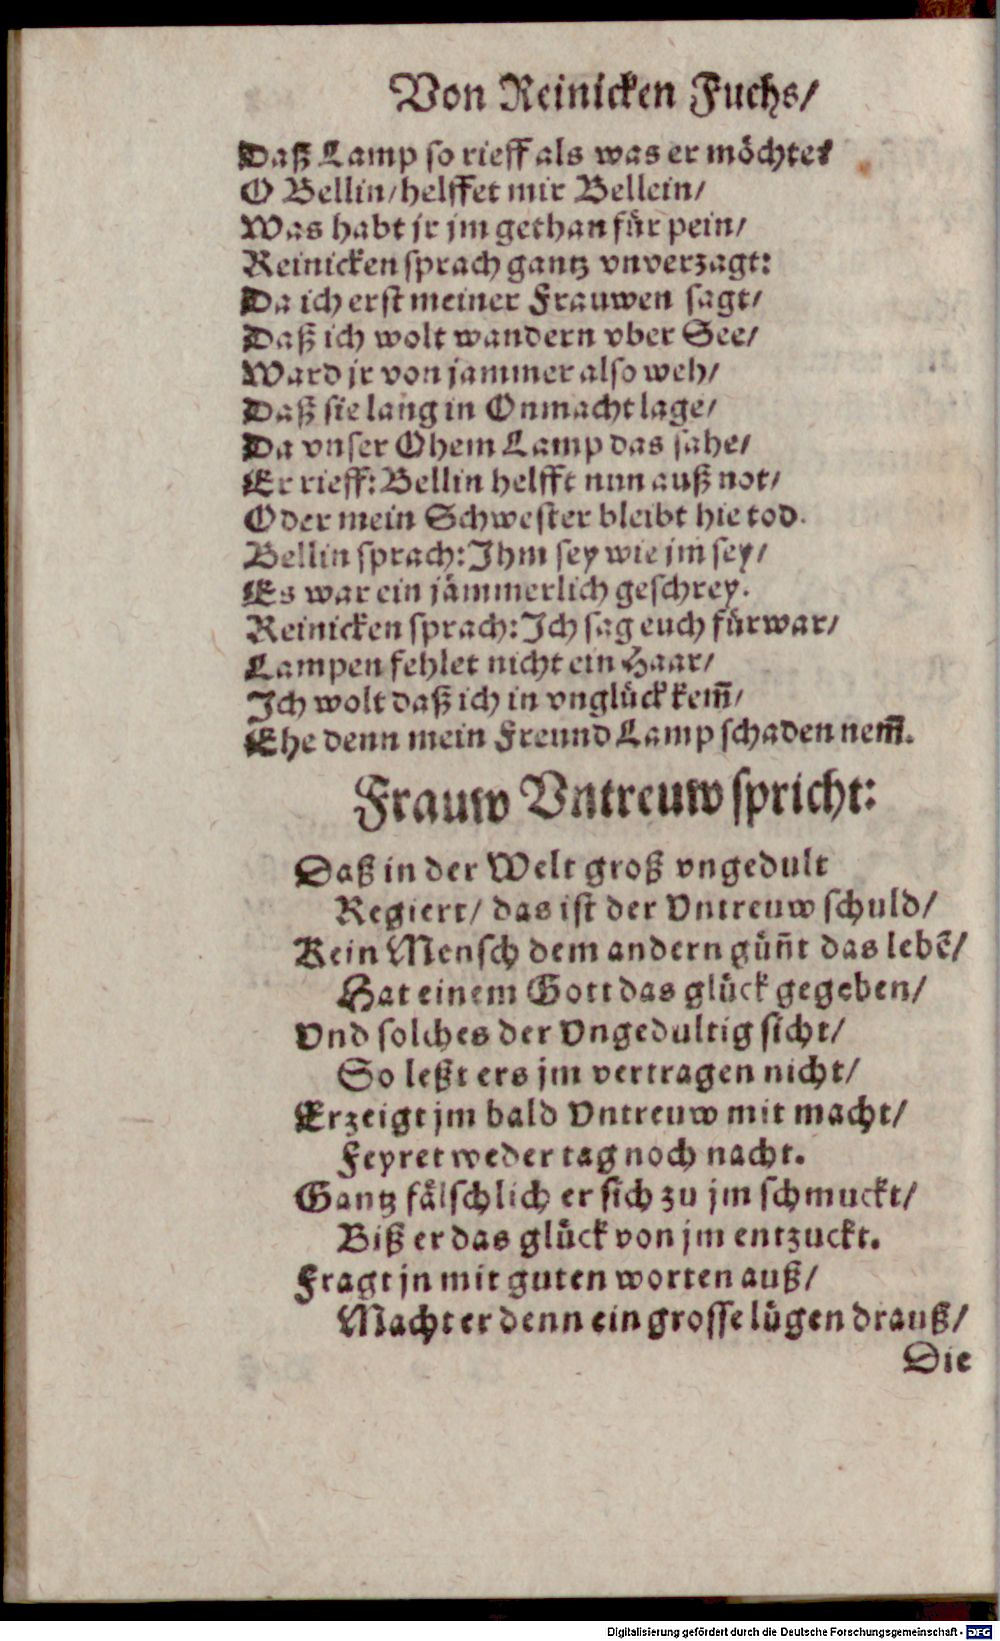 Von Reinicken Fuchs/
Daß Lamp so rieff als was er möchte?
O Bellin/ helffet mir Bellein/
Was habt jr jm gethan für pein/
Reinicken sprach gantz vnverzagt:
Da ich erst meiner Frauwen sagt/
Daß ich wolt wandern vber See/
Ward jr von jammer also weh/
Daß sie lang in Onmacht lage/
Da vnser Ohem Lamp das sahe/
Er rieff: Bellin helfft nun auß not/
Oder mein Schwester bleibt hie tod.
Bellin sprach: Ihm sey wie jm sey/
Es war ein jämmerlich geschrey.
Reinicken sprach: Ich sag euch fürwar/
Lampen fehlet nicht ein Haar/
Ich wolt daß ich in vnglück kem̃/
Ehe denn mein Freund Lamp schaden nem̃.
Frauw Vntreuw spricht:
Daß in der Welt groß vngedult
Regiert/ das ist der Vntreuw schuld/
Kein Mensch dem andern güñt das lebẽ/
Hat einem Gott das glück gegeben/
Vnd solches der Vngedultig sicht/
So leßt ers jm vertragen nicht/
Erzeigt jm bald Vntreuw mit macht/
Feyret weder tag noch nacht.
Gantz fälschlich er sich zu jm schmuckt/
Biß er das glück von jm entzuckt.
Fragt jn mit guten worten auß/
Macht er denn ein grosse lügen drauß/
Die
Digitalisierung gefördert durch die Deutsche Forschungsgemeinschaft - DFG